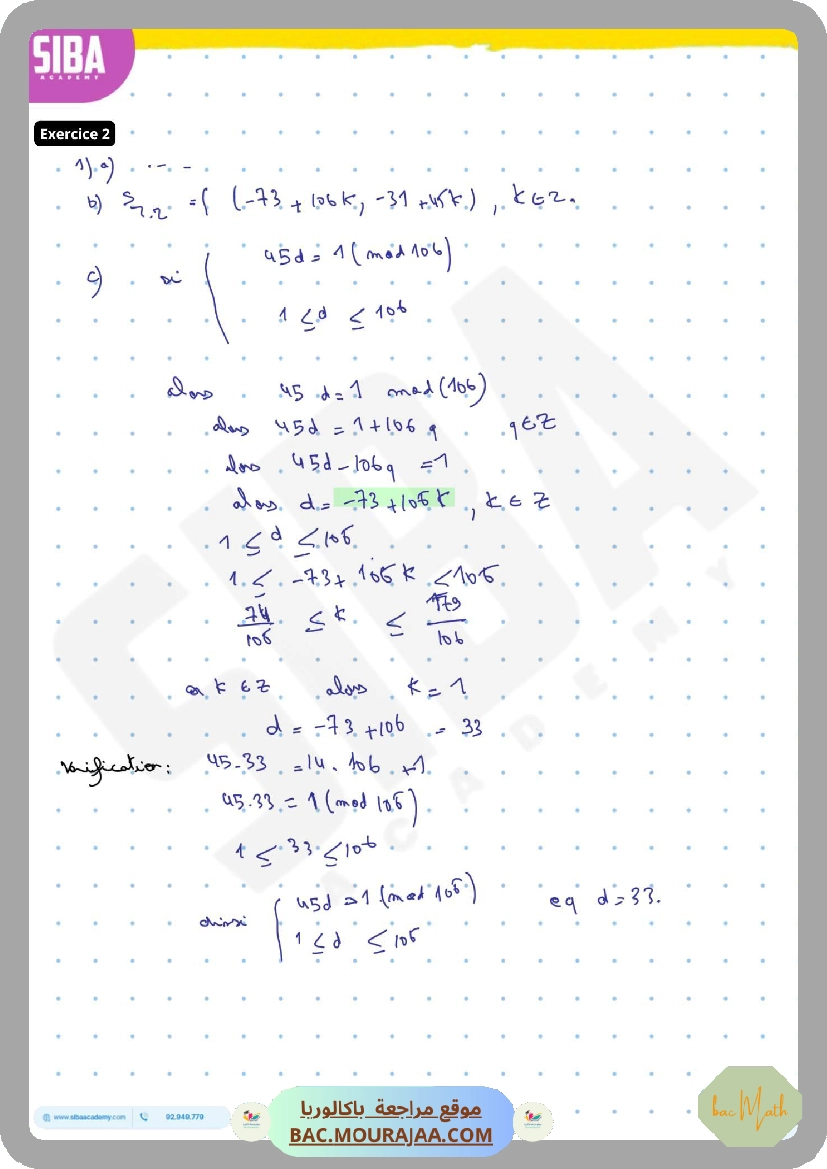 SIBA
ACADEMY
Exercice 2
1) a) ....
b) S_{Z.Z} = { (-73 + 106k, -31 + 45k), k ∈ Z.
c) si { 45d ≡ 1 (mod 106)
1 ≤ d ≤ 106
alors 45 d ≡ 1 mod (106)
alors 45d = 1 + 106 q q ∈ Z
alors 45d - 106q = 1
alors d = -73 + 106k, k ∈ Z
1 ≤ d ≤ 106
1 ≤ -73 + 106k ≤ 106
74/106 ≤ k ≤ 179/106
or k ∈ Z alors k = 1
d = -73 + 106 = 33
Verification: 45.33 = 14.106 + 1
45.33 ≡ 1 (mod 106)
1 ≤ 33 ≤ 106
ainsi { 45d ≡ 1 (mod 106) eq d = 33.
1 ≤ d ≤ 106
SIBA
ACADEMY
www.sibaacademy.com 92.949.779
موقع مراجعة باكالوريا
BAC.MOURAJAA.COM
bac Math